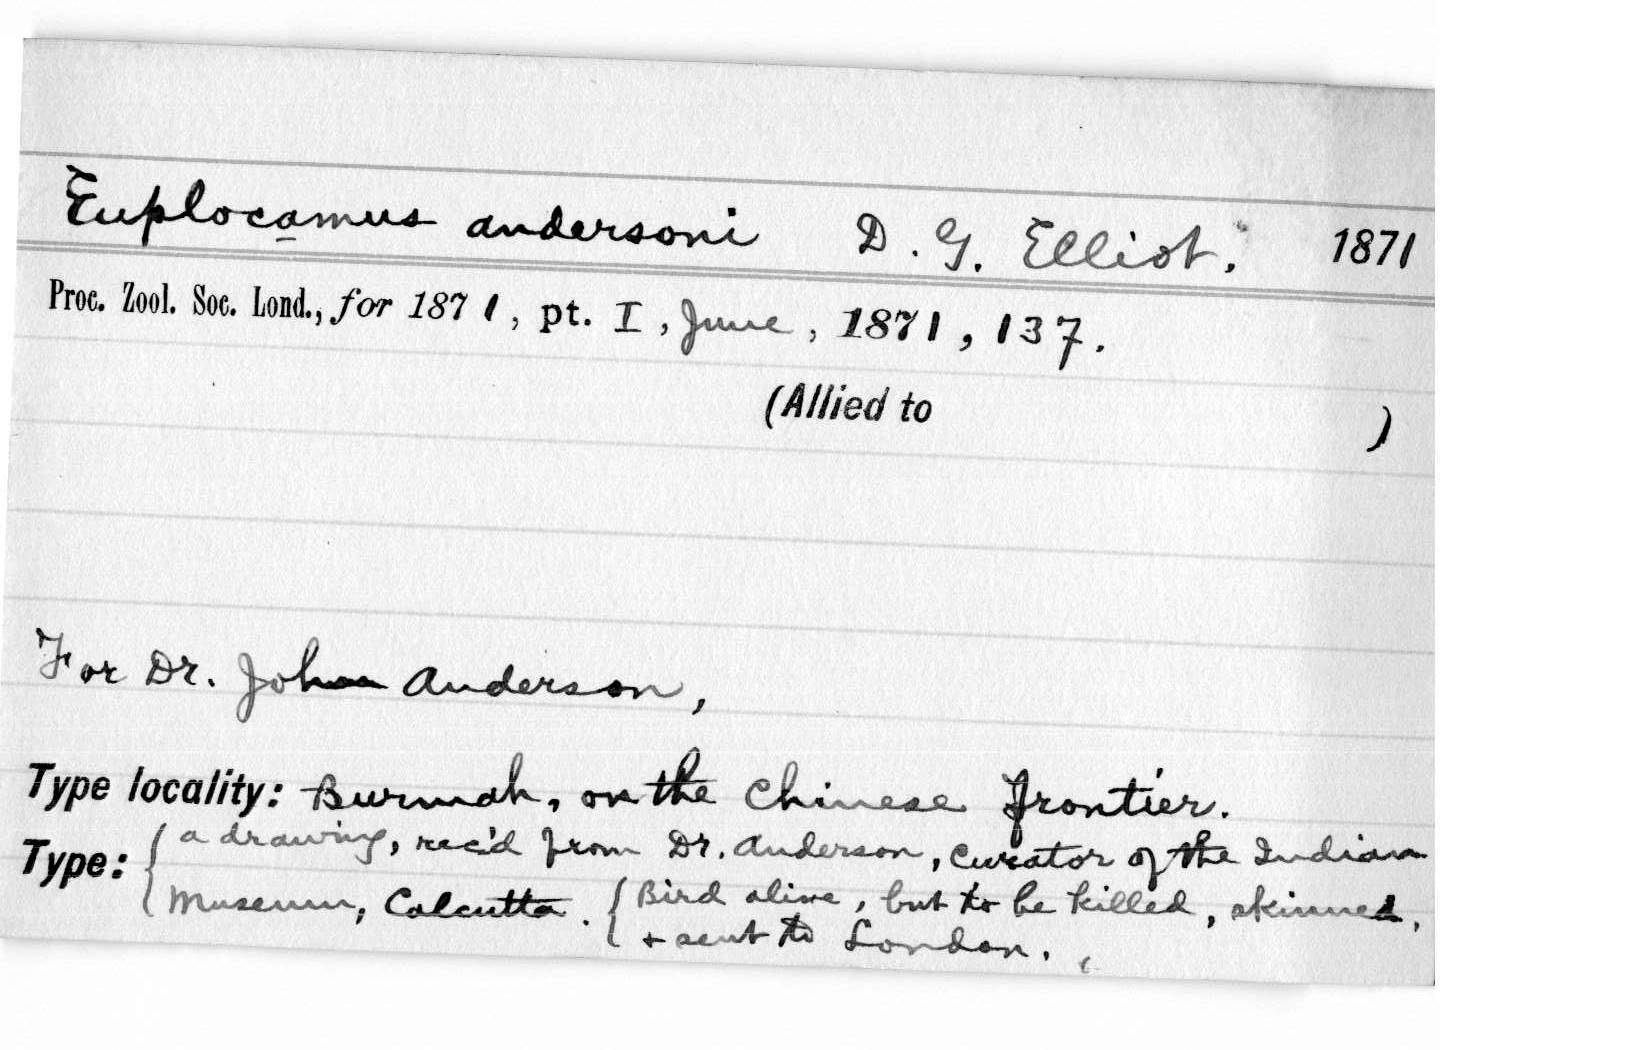 Euplocamus andersoni D. G. Elliot. 1871
Proc. Zool. Soc. Lond., for 1871, pt. I, June, 1871, 137.
(Allied to )
For Dr. John Anderson,
Type locality: Burmah, on the Chinese frontier.
Type: { a drawing, rec'd from Dr. Anderson, Curator of the Indian
Museum, Calcutta. { Bird alive, but to be killed, skinned,
+ sent to London.